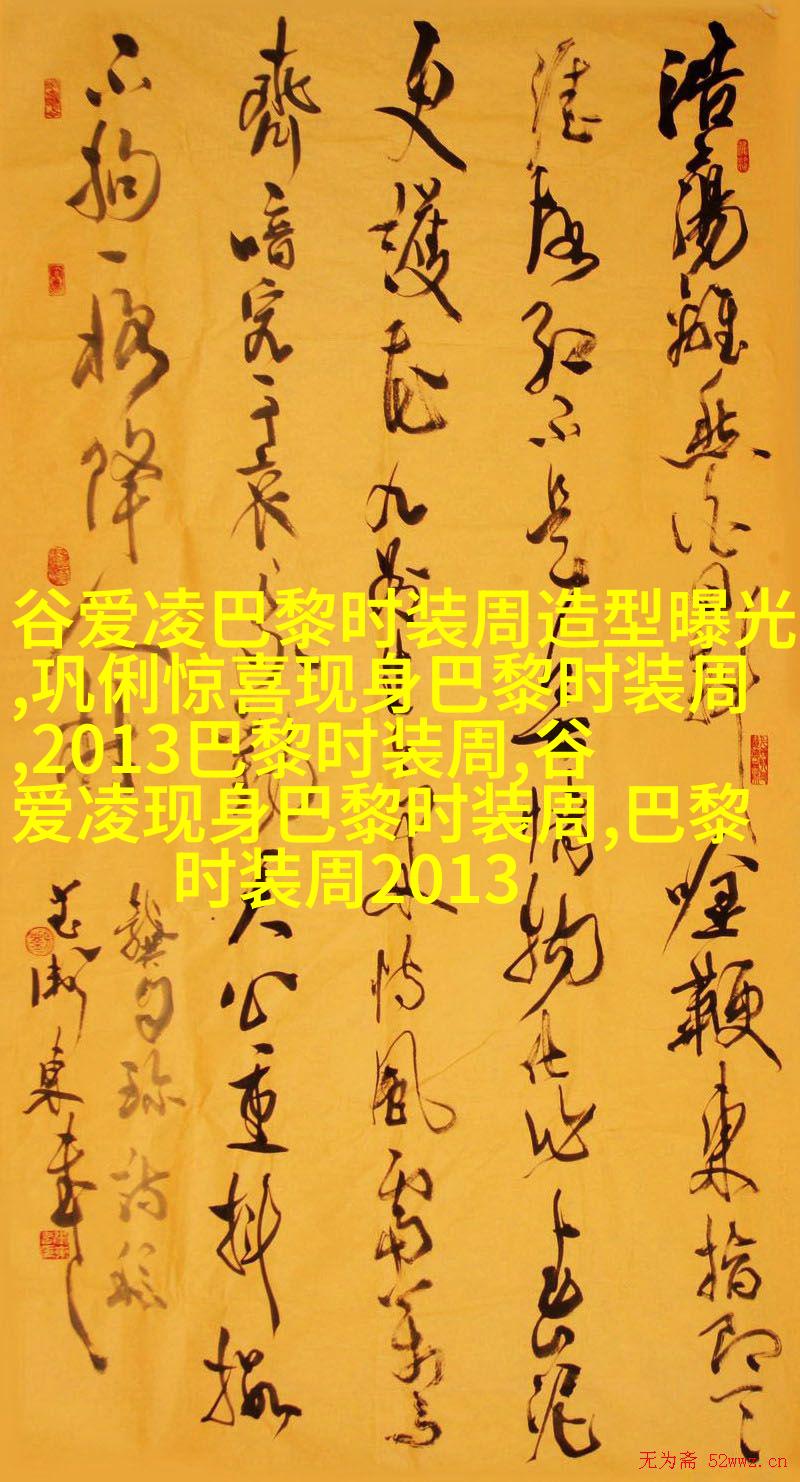 浩蕩離愁白日斜吟鞭東指即天
涯落紅不是無情物化作春泥
更護花九州生氣恃風雷萬馬
齊喑究可哀我勸天公重抖擻
不拘一格降人材
龔自珍詩
谷爱凌巴黎时装周造型曝光
,巩俐惊喜现身巴黎时装周
,2013巴黎时装周,谷
爱凌现身巴黎时装周,巴黎
时装周2013
无为斋 52wwz.cn